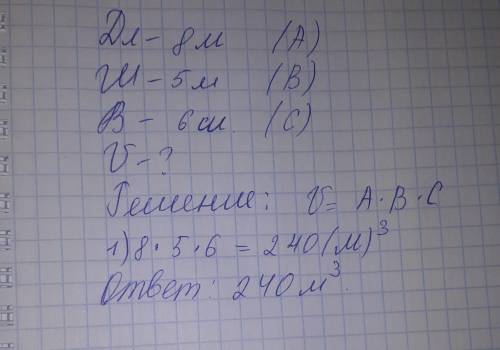 Дл - 8 м (А)
Ш - 5 м (В)
В - 6 м (С)
V - ?
Решение: V = А · В · С
1) 8 · 5 · 6 = 240 (м)³
Ответ: 240 м³.